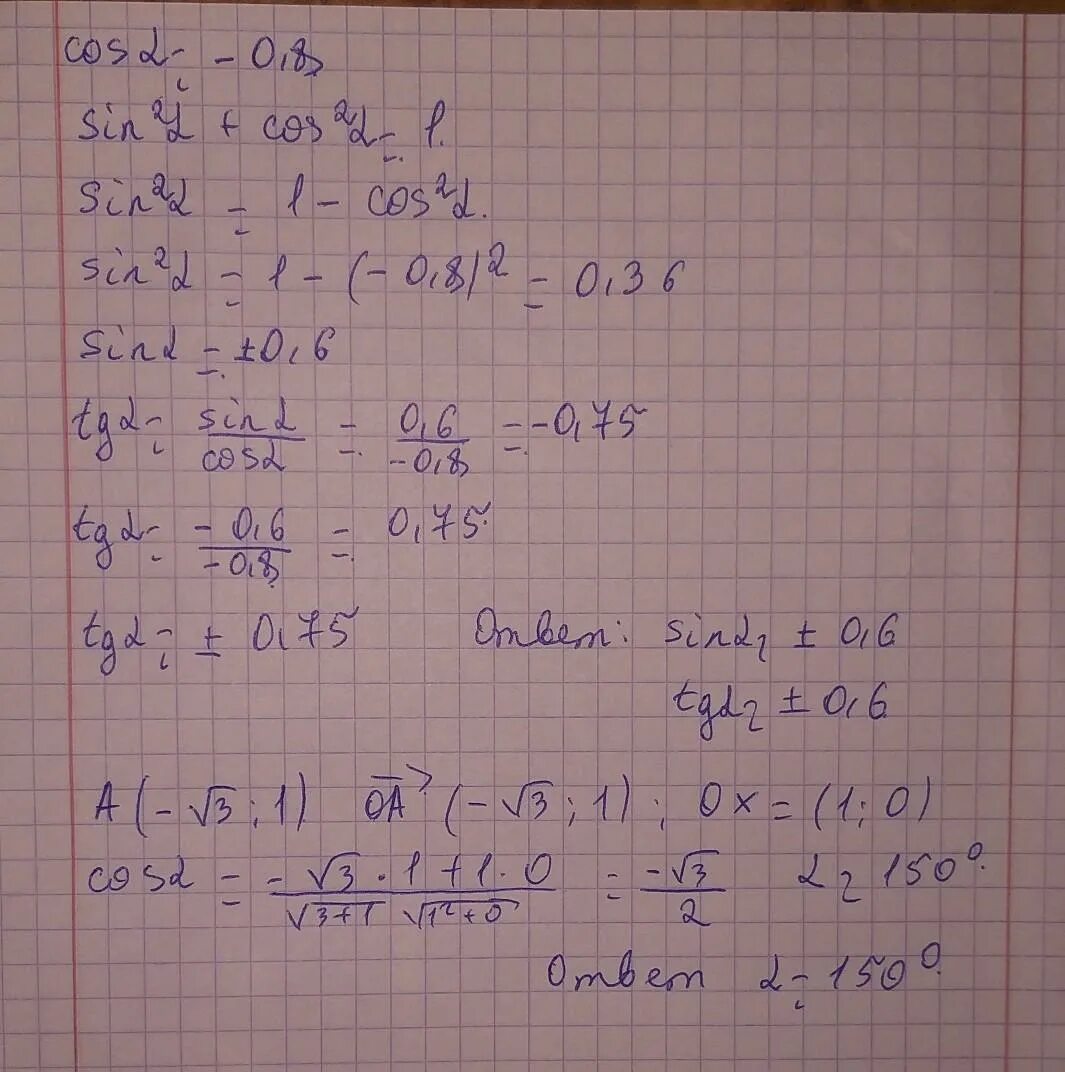 cos α = - 0,8
sin²α + cos²α = 1.
sin²α = 1 - cos²α.
sin²α = 1 - (- 0,8)² = 0,36
sin α = ±0,6
tg α = sin α / cos α = 0,6 / -0,8 = -0,75
tg α = -0,6 / -0,8 = 0,75.
tg α = ± 0,75 Ответ: sin α = ± 0,6
tg α = ± 0,6
A (-√3 ; 1) OA→ (-√3 ; 1) ; Ox = (1; 0)
cos α = -√3 · 1 + 1 · 0 / √3+1 √1²+0 = -√3 / 2 α = 150°.
Ответ α = 150°.